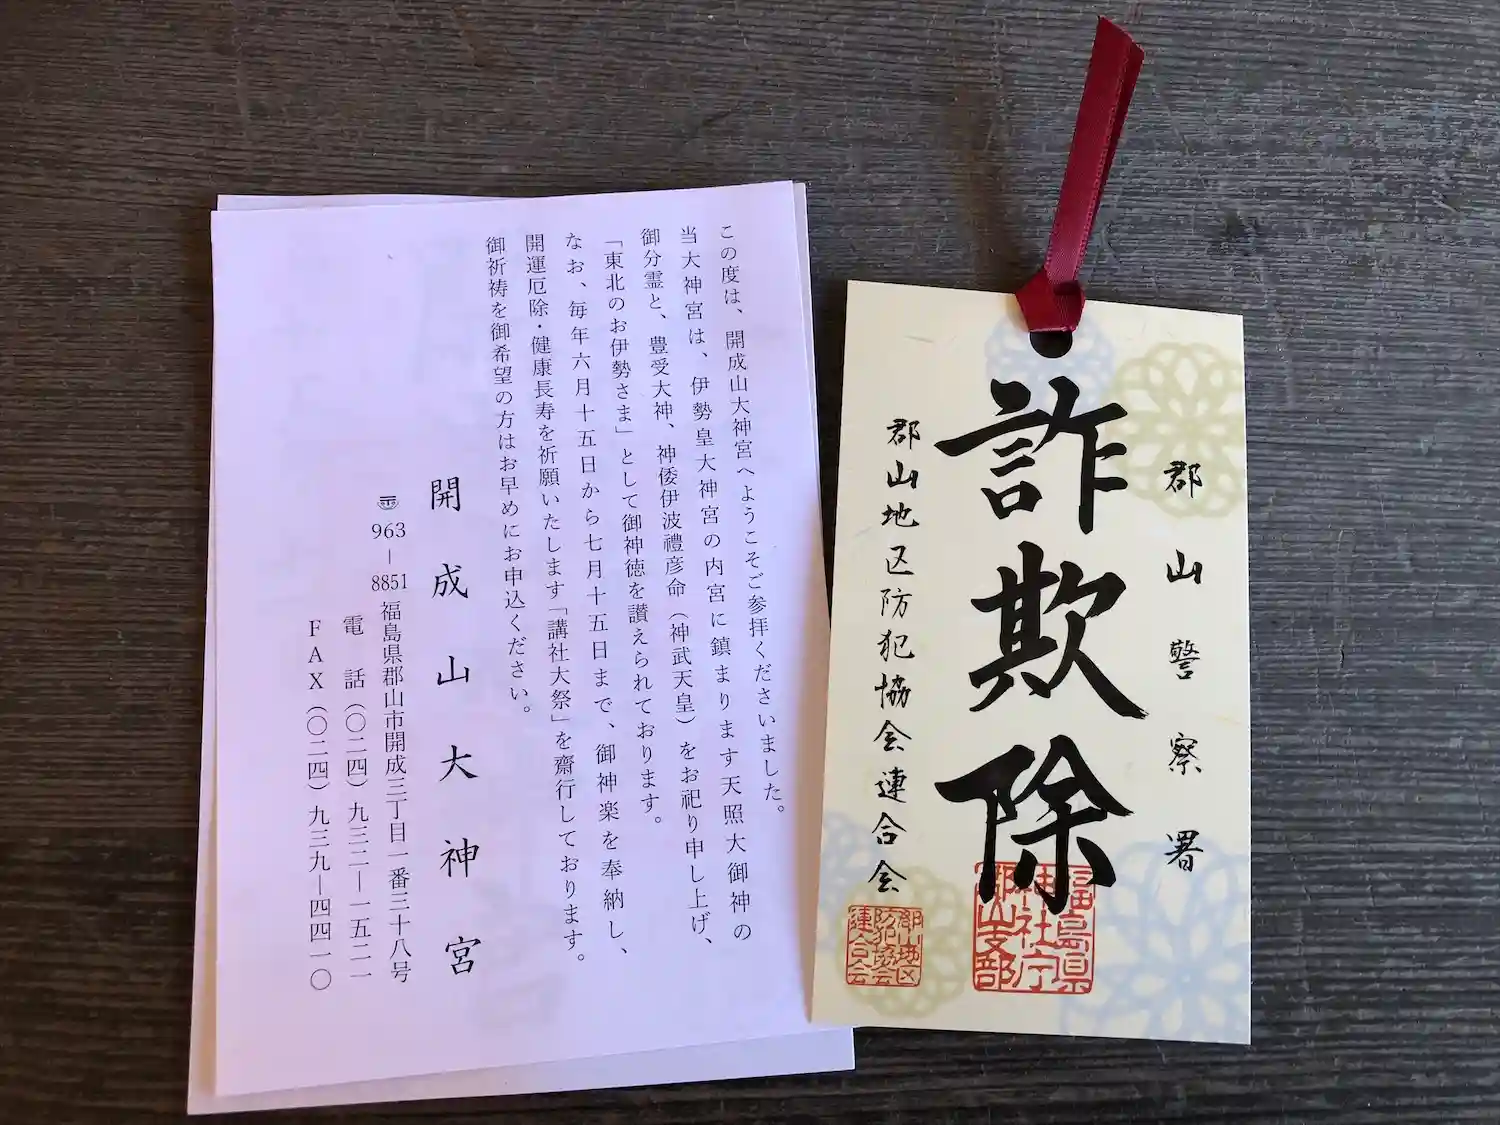 この度は、開成山大神宮へようこそご参拝くださいました。
当大神宮は、伊勢皇大神宮の内宮に鎮まります天照大御神の
御分霊と、豊受大神、神倭伊波禮彦命（神武天皇）をお祀り申し上げ、
「東北のお伊勢さま」として御神徳を讃えられております。
なお、毎年六月十五日から七月十五日まで、御神楽を奉納し、
開運厄除・健康長寿を祈願いたします「講社大祭」を齋行しております。
御祈祷を御希望の方はお早めにお申込ください。
開成山大神宮
〠963─8851 福島県郡山市開成三丁目一番三十八号
電話（〇二四）九三二─一五二一
FAX（〇二四）九三九─四四一〇
郡山警察署
詐欺除
郡山地区防犯協会連合会
福島県
神社庁
郡山支部
郡山地区
防犯協会
連合会